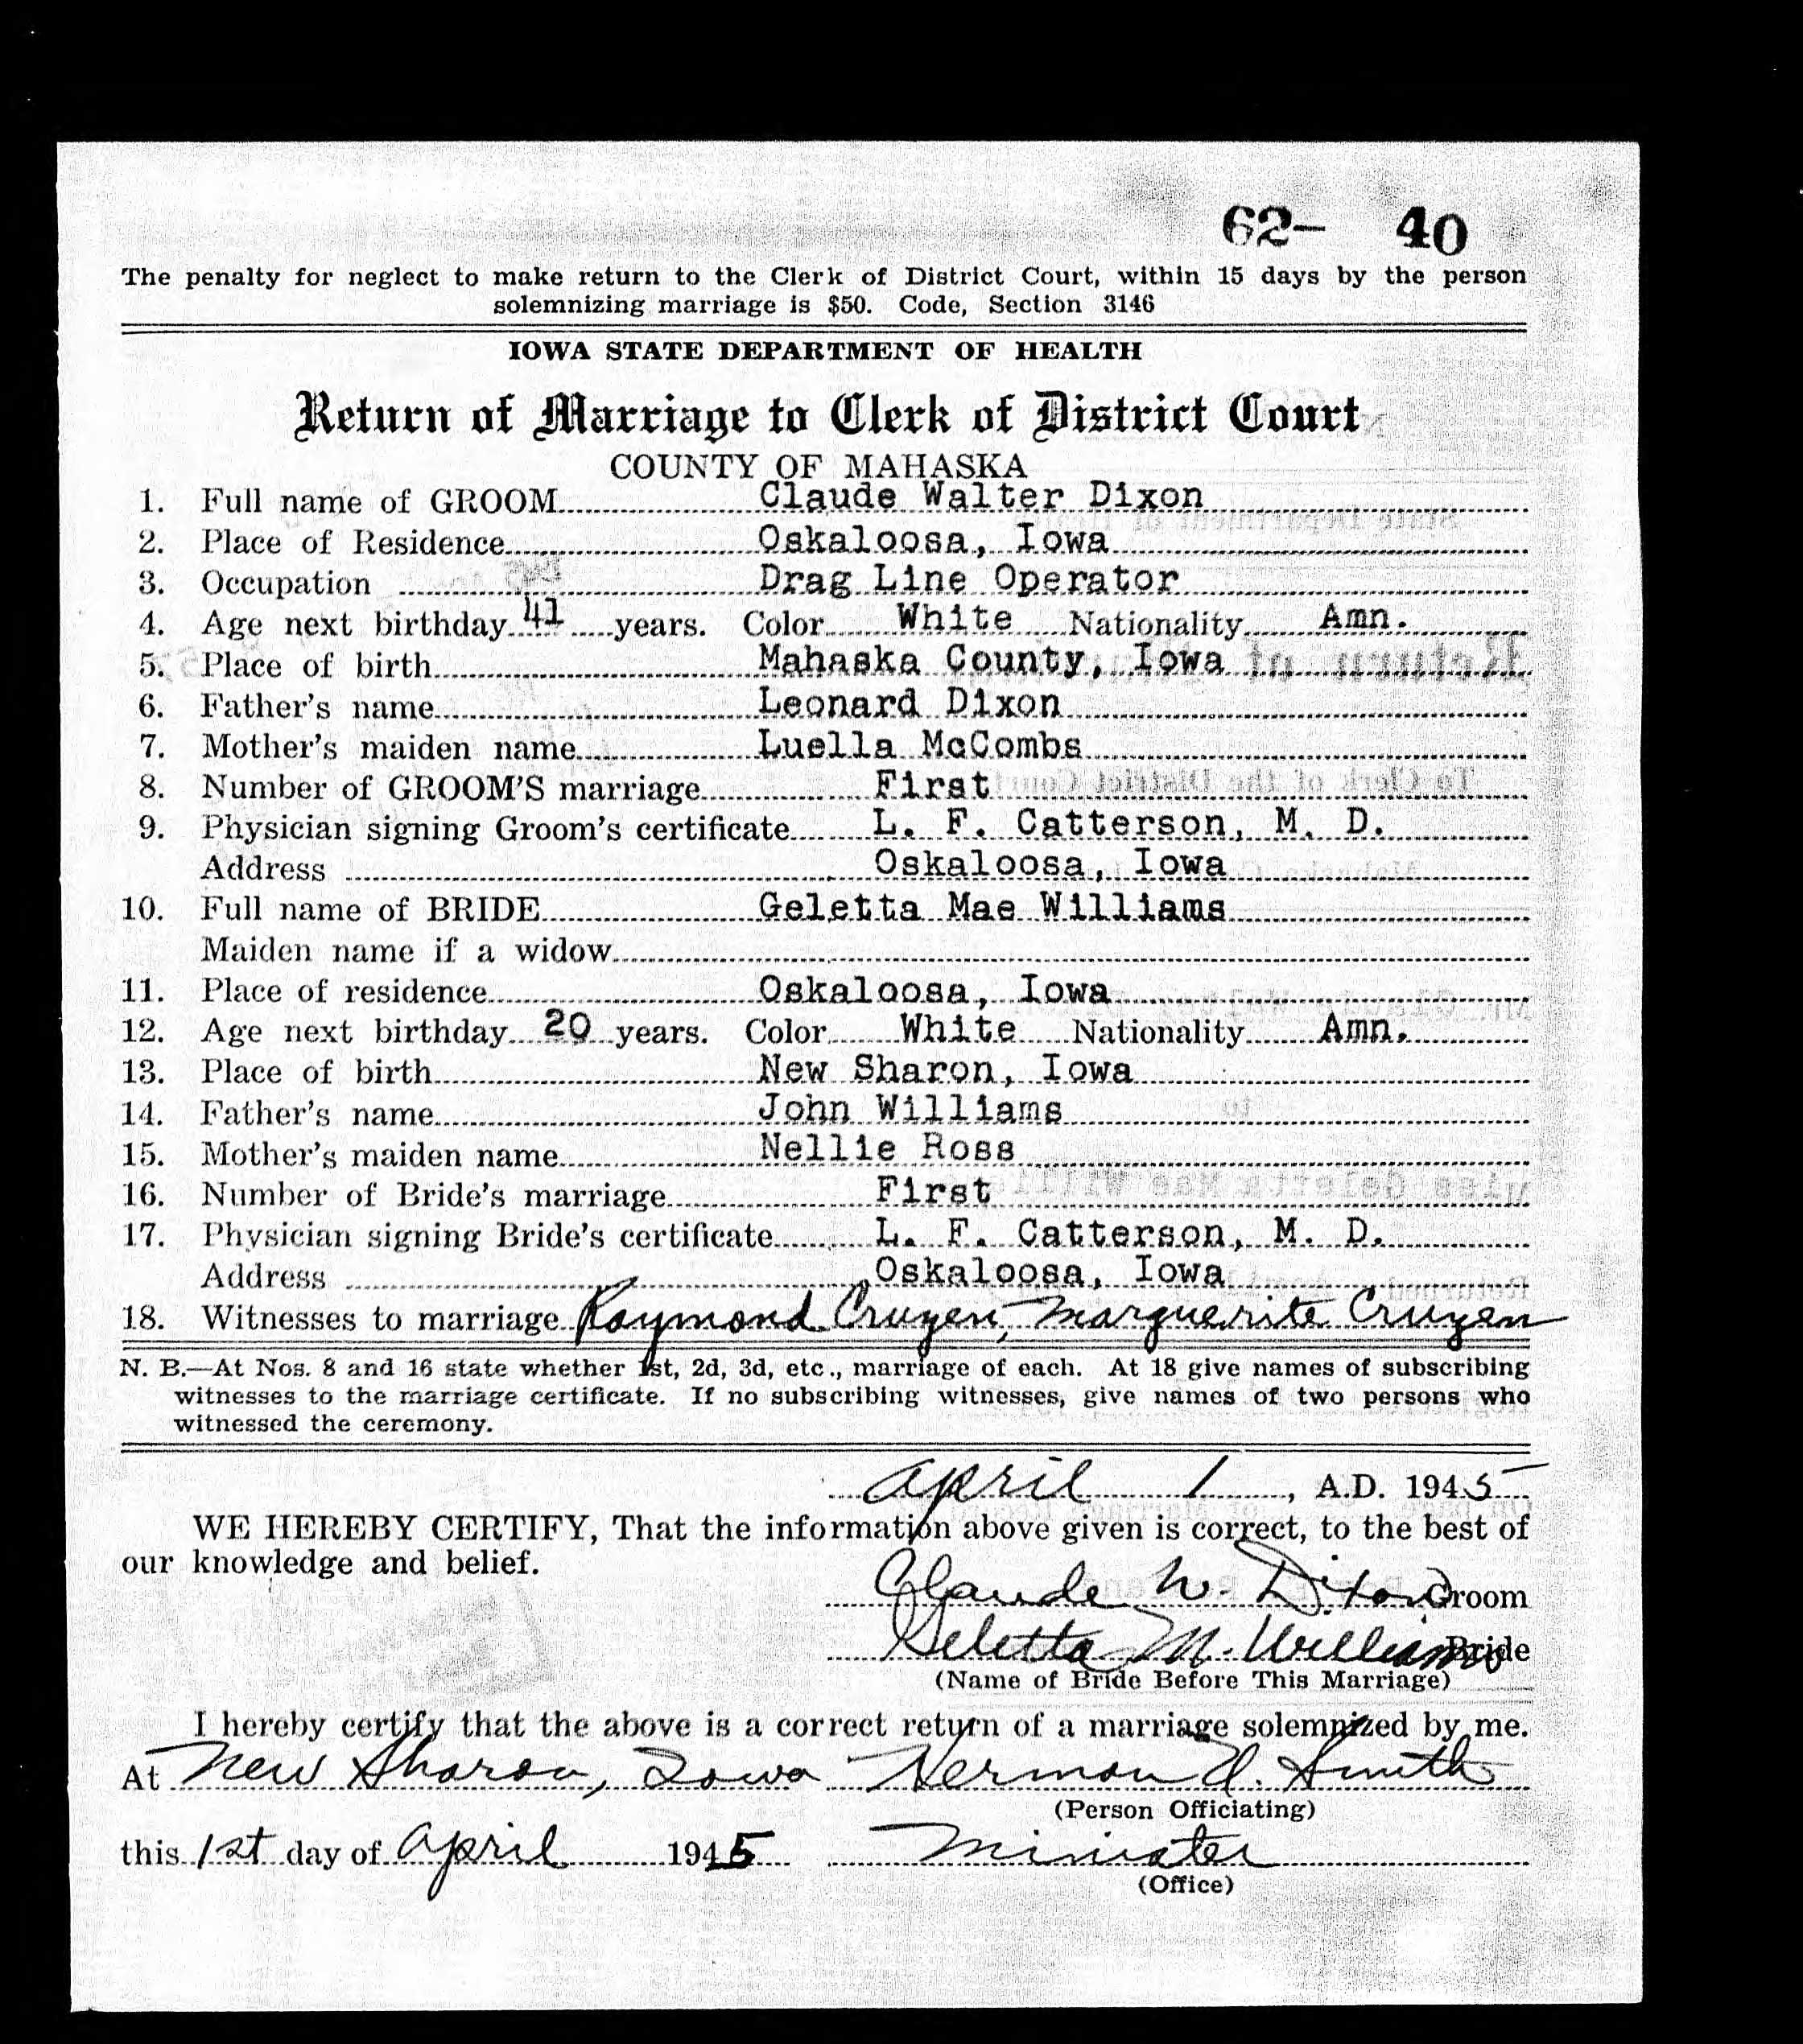 62- 40
The penalty for neglect to make return to the Clerk of District Court, within 15 days by the person
solemnizing marriage is $50. Code, Section 3146
IOWA STATE DEPARTMENT OF HEALTH
Return of Marriage to Clerk of District Court
COUNTY OF MAHASKA
1. Full name of GROOM Claude Walter Dixon
2. Place of Residence Oskaloosa, Iowa
3. Occupation Drag Line Operator
4. Age next birthday 41 years. Color White Nationality Amn.
5. Place of birth Mahaska County, Iowa
6. Father's name Leonard Dixon
7. Mother's maiden name Luella McCombs
8. Number of GROOM'S marriage First
9. Physician signing Groom's certificate L. F. Catterson, M. D.
Address Oskaloosa, Iowa
10. Full name of BRIDE Geletta Mae Williams
Maiden name if a widow
11. Place of residence Oskaloosa, Iowa
12. Age next birthday 20 years. Color White Nationality Amn.
13. Place of birth New Sharon, Iowa
14. Father's name John Williams
15. Mother's maiden name Nellie Ross
16. Number of Bride's marriage First
17. Physician signing Bride's certificate L. F. Catterson, M. D.
Address Oskaloosa, Iowa
18. Witnesses to marriage Raymond Cruzen, Marguerite Cruzen
N. B.—At Nos. 8 and 16 state whether 1st, 2d, 3d, etc., marriage of each. At 18 give names of subscribing
witnesses to the marriage certificate. If no subscribing witnesses, give names of two persons who
witnessed the ceremony.
April 1, A.D. 1945
WE HEREBY CERTIFY, That the information above given is correct, to the best of
our knowledge and belief.
Claude W. Dixon Groom
Geletta M. Williams Bride
(Name of Bride Before This Marriage)
I hereby certify that the above is a correct return of a marriage solemnized by me.
At New Sharon, Iowa Hermon Smith
(Person Officiating)
this 1st day of April 1945 Minister
(Office)